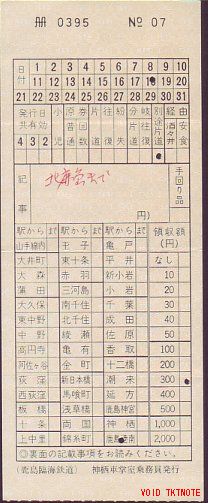 冊 0395 № 07
日付 1 2 3 4 5 6 7 8 9 10
11 12 13 14 15 16 17 18 19 20
21 22 23 24 25 26 27 28 29 30 31
発行日共有効 小児 原券普通 券片道 往復
4 3 2
経由
記事
手回り品
円)
駅から まで 駅から まで 駅から まで 領収額
山手線内 王子 亀戸 (円)
大井町 東十条 平井 なし
大森 赤羽 新小岩 10
蒲田 三河島 小岩 20
大久保 南千住 千葉 30
東中野 北千住 成田 40
中野 綾瀬 佐原 50
高円寺 亀有 香取 100
阿佐ヶ谷 金町 十二橋 200
荻窪 新日本橋 潮来 300
西荻窪 馬喰町 延方 400
板橋 浅草橋 鹿島神宮 500
十条 両国 神栖 1,000
上中里 錦糸町 2,000
◎裏面の記載事項をお読みください。
(鹿島臨海鉄道) 神栖車掌室乗務員発行
VOID TKTNOTE